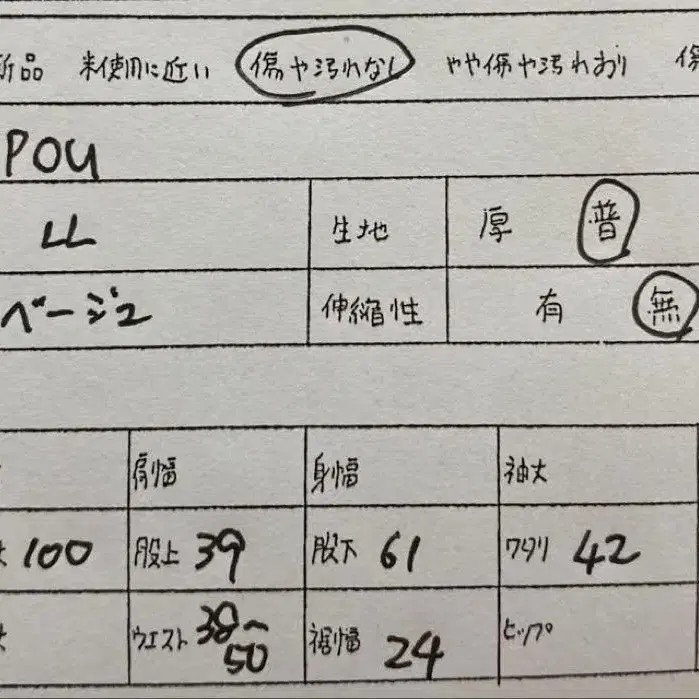 新品 未使用に近い 傷や汚れなし やや傷や汚れあり 傷
POU
LL 生地 厚 普
ベージュ 伸縮性 有 無
肩幅 身幅 袖丈
丈 100 股上 39 股下 61 ワタリ 42
丈 ウエスト 38~50 裾幅 24 ヒップ